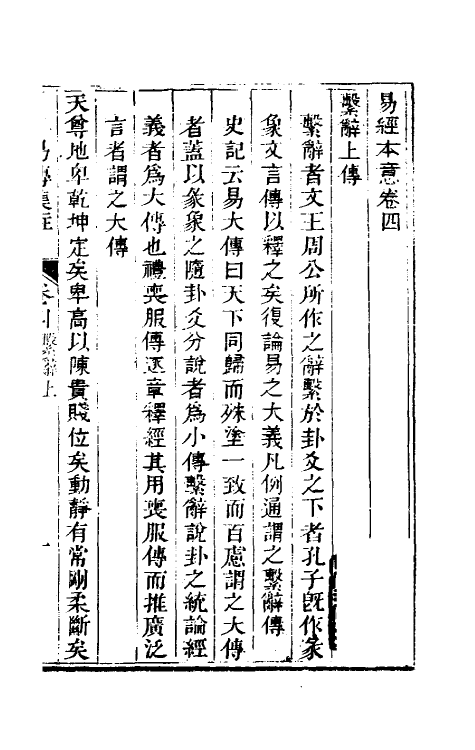 易經本意卷四
繫辭上傳
繫辭者文王周公所作之辭繫於卦爻之下者孔子旣作彖
象文言傳以釋之矣復論易之大義凡例通謂之繫辭傳
史記云易大傳曰天下同歸而殊塗一致而百慮謂之大傳
者蓋以彖象之隨卦爻分說者爲小傳繫辭說卦之統論經
義者爲大傳也禮喪服傳逐章釋經其用喪服傳而推廣泛
言者謂之大傳
天尊地卑乾坤定矣卑高以陳貴賤位矣動靜有常剛柔斷矣
繫辭上
一